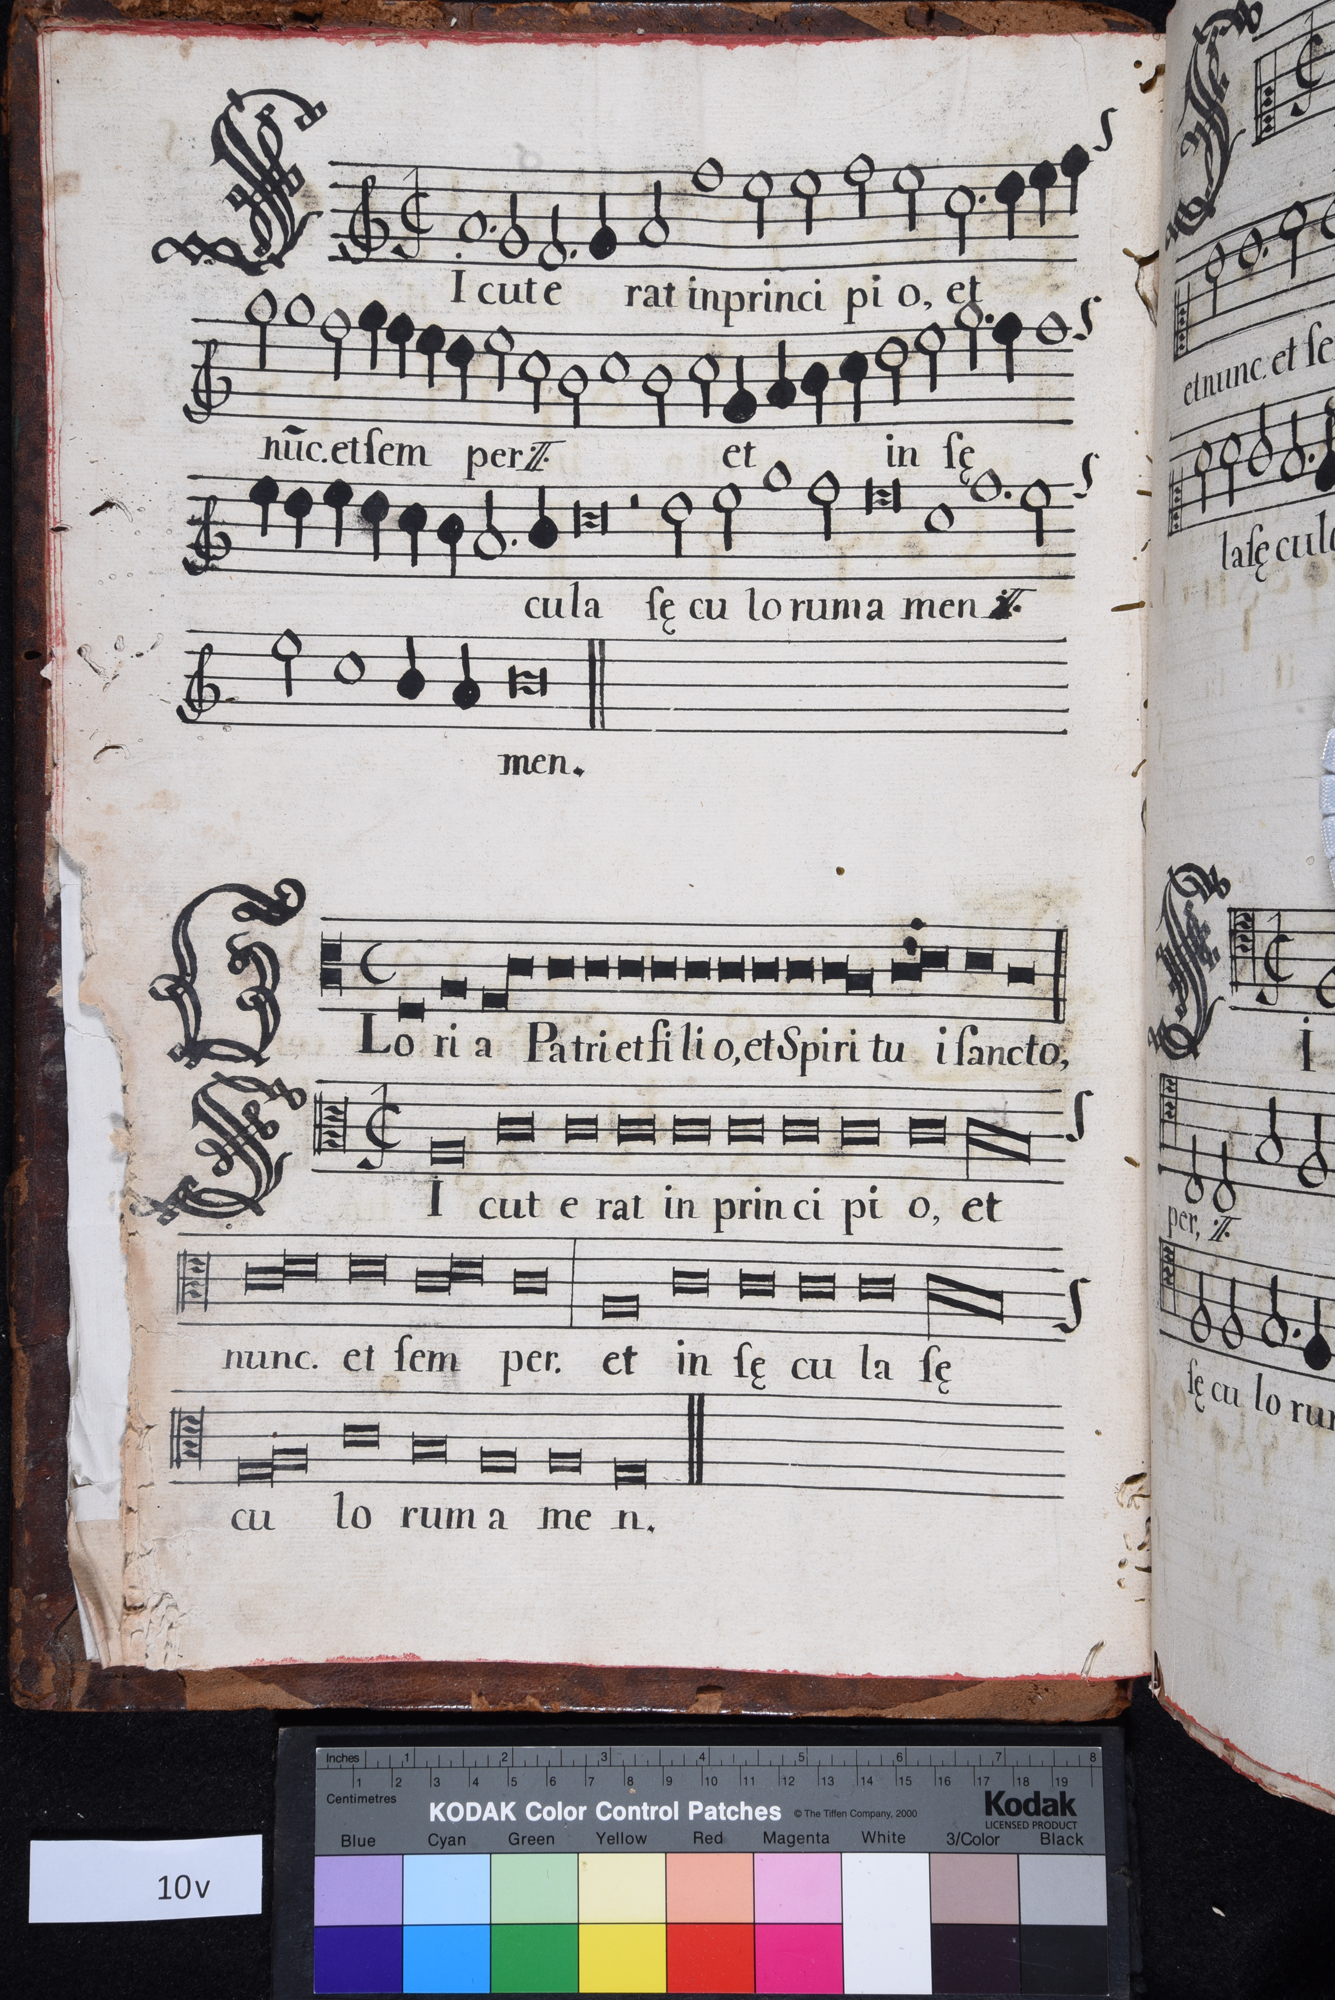 SIcut e rat in princi pi o, et
nũc. et ſem per ij. et in ſę
cula ſę cu lo rum a men ij.
men.
GLo ri a Patri et fi li o, et Spiri tu i ſancto,
SI cut e rat in prin ci pi o, et
nunc. et ſem per. et in ſę cu la ſę
cu lo rum a me n.
et nunc. et ſe
la ſę culo
I
per, ij.
ſę cu lo rum
Inches 1 2 3 4 5 6 7 8
1 2 3 4 5 6 7 8 9 10 11 12 13 14 15 16 17 18 19
Centimetres
KODAK Color Control Patches © The Tiffen Company, 2000 Kodak
LICENSED PRODUCT
Blue Cyan Green Yellow Red Magenta White 3/Color Black
10v